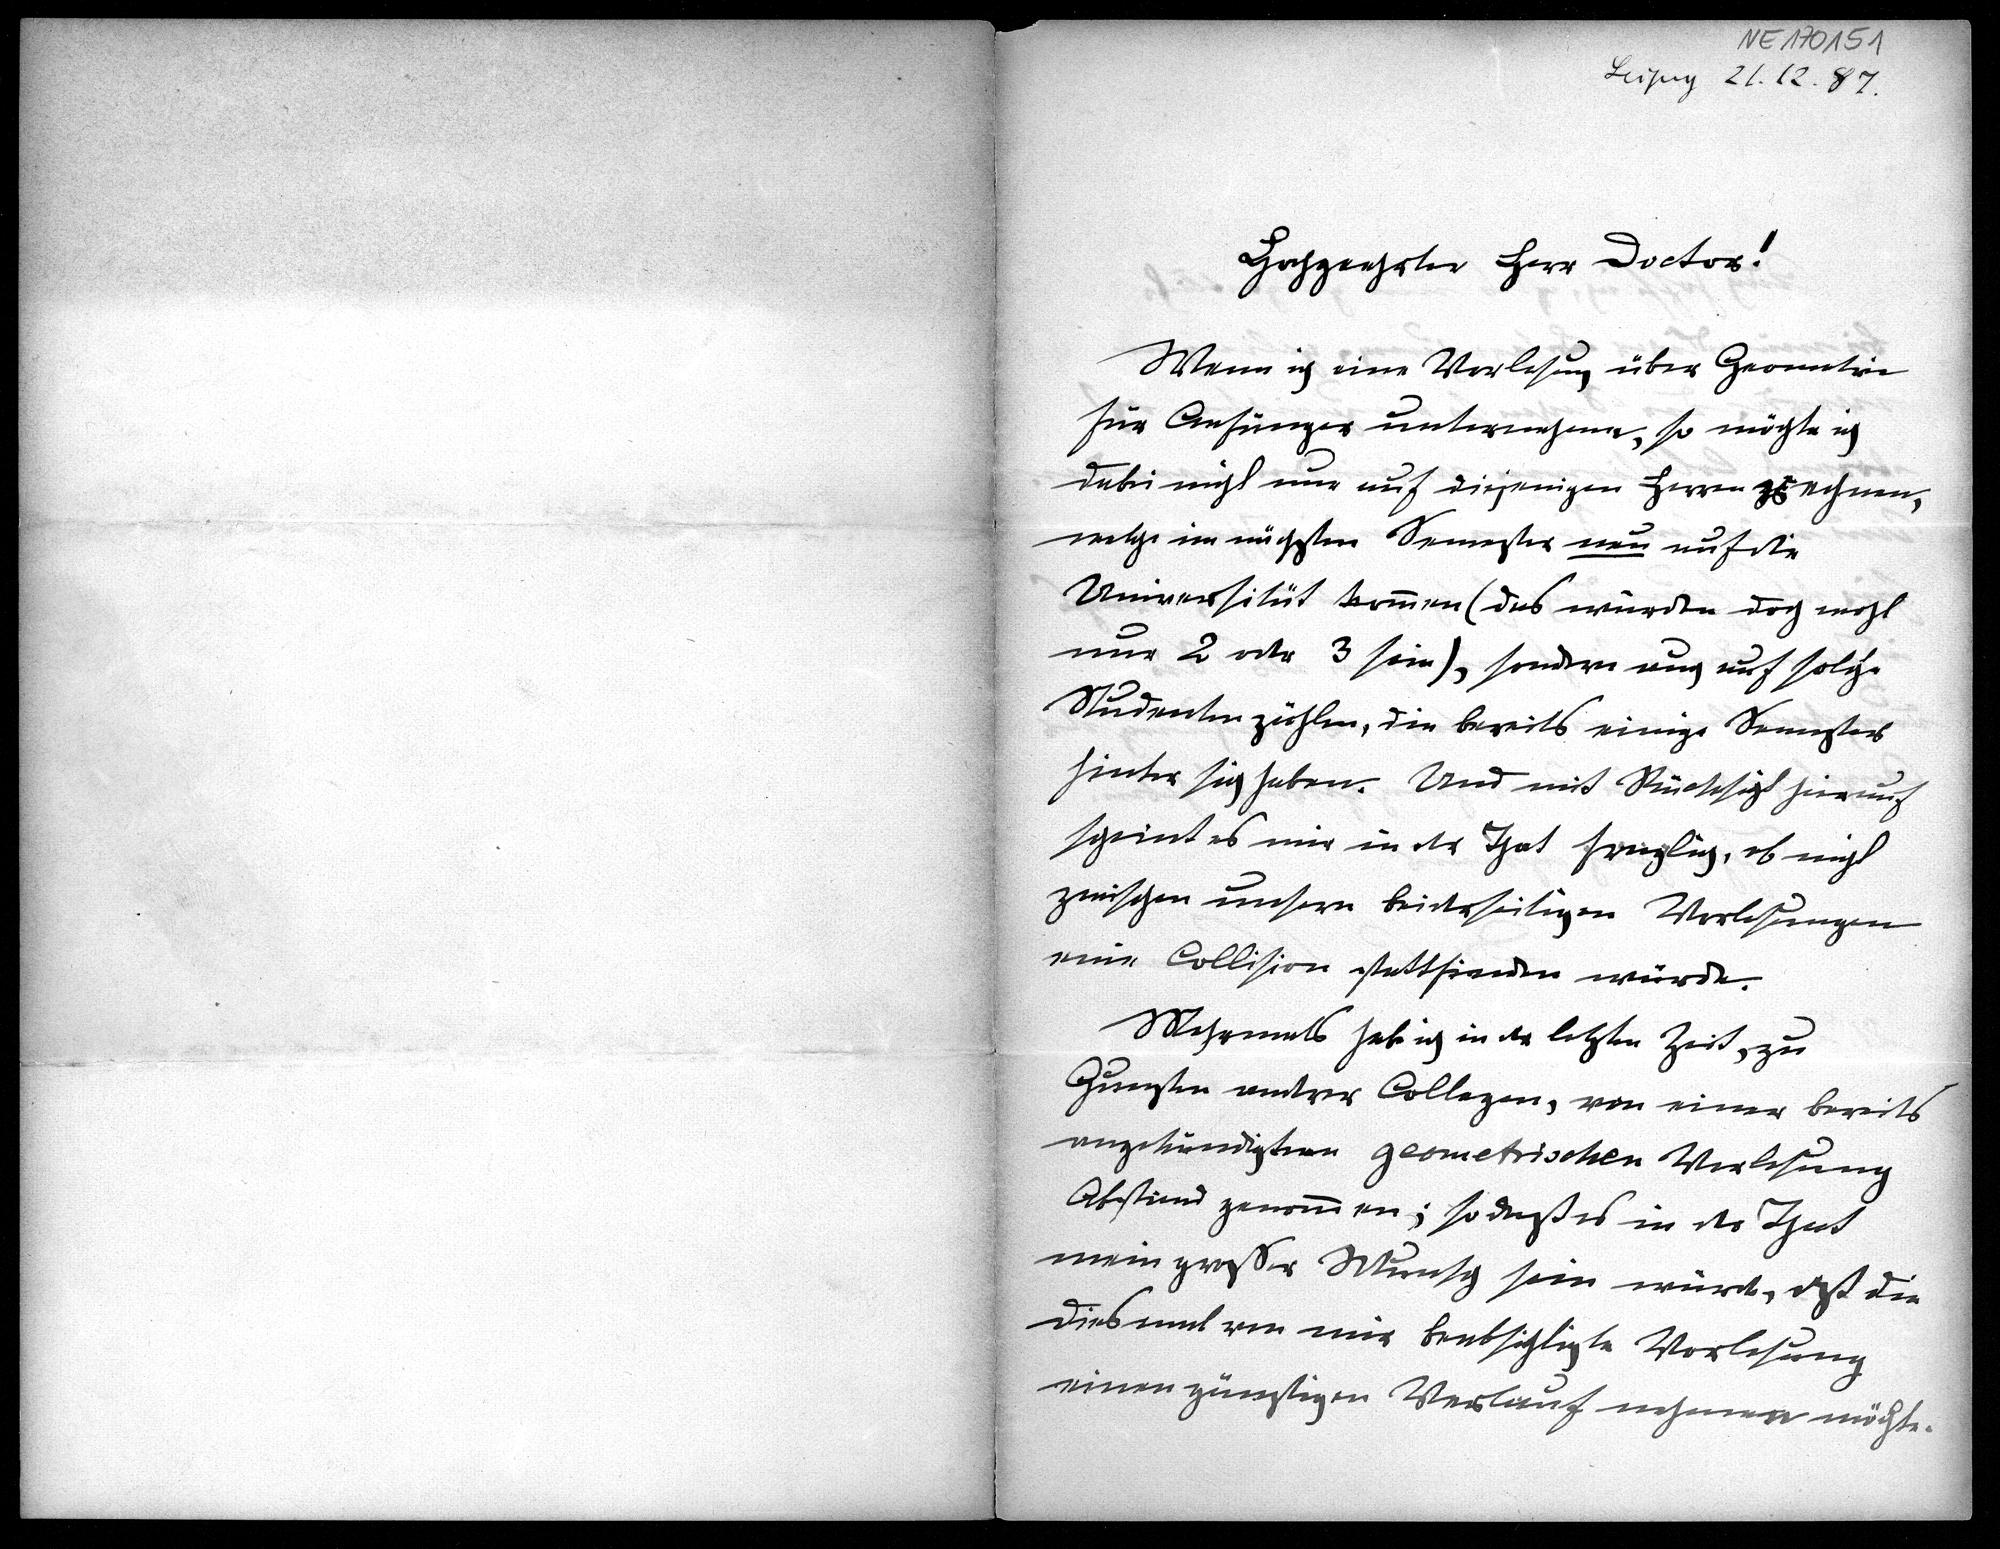 NE170151
Leipzig 21.12.87.
Hochgeehrter Herr Doctor!
Wenn ich eine Vorlesung über Geometrie
für Anfänger unternehme, so möchte ich
dabei nicht nur auf diejenigen Herren rechnen,
welche im nächsten Semester neu auf die
Universität kommen (das würden doch wohl
nur 2 oder 3 sein), sondern auch auf solche
Studenten zählen, die bereits einige Semester
hinter sich haben. Und mit Rücksicht hierauf
scheint es mir in der That fraglich, ob nicht
zwischen unsern beiderseitigen Vorlesungen
eine Collision stattfinden würde.
Mehrmals habe ich in der letzten Zeit, zu
Gunsten andrer Collegen, von einer bereits
angekündigten geometrischen Vorlesung
Abstand genommen; so daß es in der That
mein großer Wunsch sein würde, daß die
diesmal von mir beabsichtigte Vorlesung
einen günstigen Verlauf nehmen möchte.